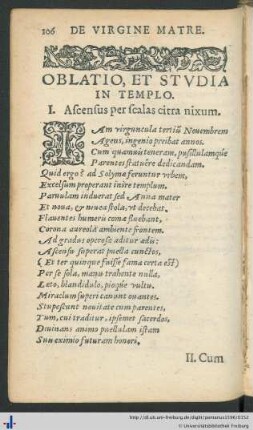 106 DE VIRGINE MATRE.
OBLATIO, ET STVDIA
IN TEMPLO.
I. Ascensus per scalas citra nixum.
IAm virguncula tertiū Nouembrem
Agens, ingenio preibat annos.
Cum quamuis teneram, pusillulamque
Parentes statuêre dedicandam.
Quid ergo? ad Solymæ feruntur vrbem,
Excelsum properant inire templum.
Paruulam induerat sed Anna mater
Et noua, & niuea stola, vt decebat.
Flauentes humeris comæ fluebant,
Corona aureola ambiente frontem.
Ad gradus operoso aditur adiu:
Ascensu superat puella cunctos,
(Et ter quinque fuisse fama certa est)
Per se sola, manu trahente nulla.
Læto, blandidulo, pioque vultu.
Miraclum superi tanunt ouantes.
Stupescunt nouitate cum parentes,
Tum, cui traditur, ipsemet sacerdos,
Diuinans animo puellulam istam
Suu eximio futuram honori.
II. Cum
http://dl.ub.uni-freiburg.de/diglit/pontanus1594/0152
© Universitätsbibliothek Freiburg